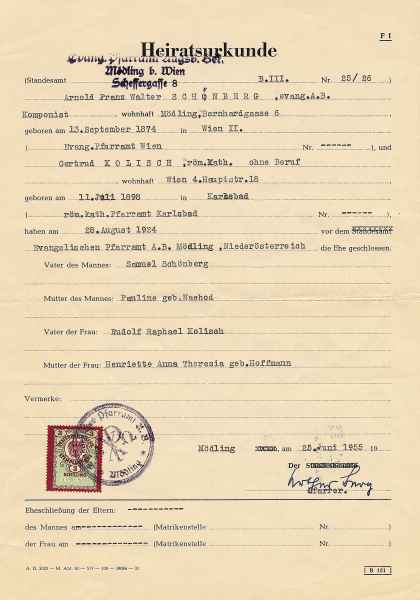 F I
Heiratsurkunde
Evang. Pfarramt Augsb. Bek.
Mödling b. Wien
Scheffergasse 8
(Standesamt B.III. Nr. 25/26)
Arnold Franz Walter SCHÖNBERG ,evang.A.B.
Komponist wohnhaft Mödling,Bernhardgasse 6
geboren am 13.September 1874 in Wien II.
(Evang.Pfarramt Wien Nr. ------), und
Gertrud KOLISCH ,röm.Kath. ohne Beruf
wohnhaft Wien 4.Hauptstr.18
geboren am 11.Juli 1898 in Karlsbad
(röm.kath.Pfarramt Karlsbad Nr. ------)
haben am 28.August 1924 vor dem Standesamt
Evangelischen Pfarramt A.B. Mödling ,Niederösterreich die Ehe geschlossen.
Vater des Mannes: Samuel Schönberg
Mutter des Mannes: Pauline geb.Nachod
Vater der Frau: Rudolf Raphael Kolisch
Mutter der Frau: Henriette Anna Theresia geb.Hoffmann
Vermerke:
Mödling
Mödling , am 25.Juni 1955 19
Der
Pfarrer.
Eheschließung der Eltern: -----------
des Mannes am ----------- (Matrikenstelle Nr. )
der Frau am ----------- (Matrikenstelle Nr. )
B 121